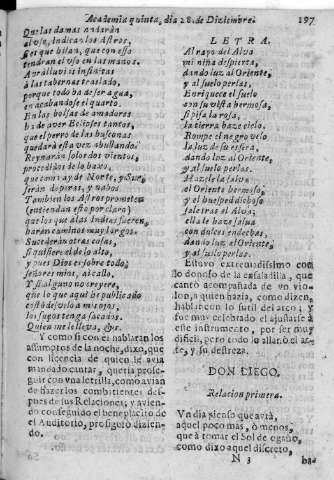 Academia quinta, dia 28. de Diziembre. 197
Que las damas andarán
al vso, Indican los Astros,
Ses que bilan, que con esso
tendran el vso en las manos.
Avrá lluvias infinitas
à las tabernas trasladò,
porque todo ha de ser agua,
en acabandose el quarto.
En las bolsas de amadores
ha de aver Eclipses tantos,
que el perro de las busconas
quedará esta vez abullando.
Reynarán solos dos vientos,
procedidos de lo baxo,
que como ay de Norte, y Sur,
serán de puras, y nabos
Tambien los Astros prometen
(entiendan esto por claro)
que los que alas Indias fueren,
harán caminos muy largos.
Sucederán otras cosas,
si quisiere el de lo alto,
y pues Dios es sobre todo,
señores mios, ai callo.
Y si alguno no creyere,
que lo que aqui he publicado
està de velo à mis ojos,
los suyos tenga sacados.
Quien me lo lleva, &c.
Y como si con el hablaran los
assumptos de la noche, dixo, que
con licencia de quien le avia
mandado cantar, queria prose-
guir con vna letrilla, como avian
de hazerlos combitientes des-
pues de sus Relaciones, y avien-
do conseguido el beneplacito de
el Auditorio, prosiguiò dizien-
do.
LETRA.
Al rayo del Alva
mi niña despierta,
dando luz al Oriente,
y al suelo perlas.
Enriquece el suelo
con su vista hermosa,
si pisa la rosa,
la tierra haze cielo.
Rompe el negro velo
la luz de su esfera,
dando luz al Oriente,
y al suelo perlas.
Hazele la salva
el Oriente hermoso,
y el huesped dichoso
sale tras el Alva:
Las aves la salva
con dulces endechas,
dando luz al Oriente,
y al suelo perlas.
Estuvo extremadissimo con
lo donoso de la ensaladilla, que
cantò acompañada de vn vio-
lon, a quien hazia, como dizen,
hablar con lo sutil del arco; y
fue muy celebrado el ajustarse à
este instrumento, por ser muy
dificil, pero todo lo allanò el ar-
te, y su destreza.
DON DIEGO.
Relacion primera.
Vn dia pienso que avrà,
aquel poco mas, ò menos,
que à tomar el Sol de egaño,
como dixo aquel discreto,
N 3 ba-